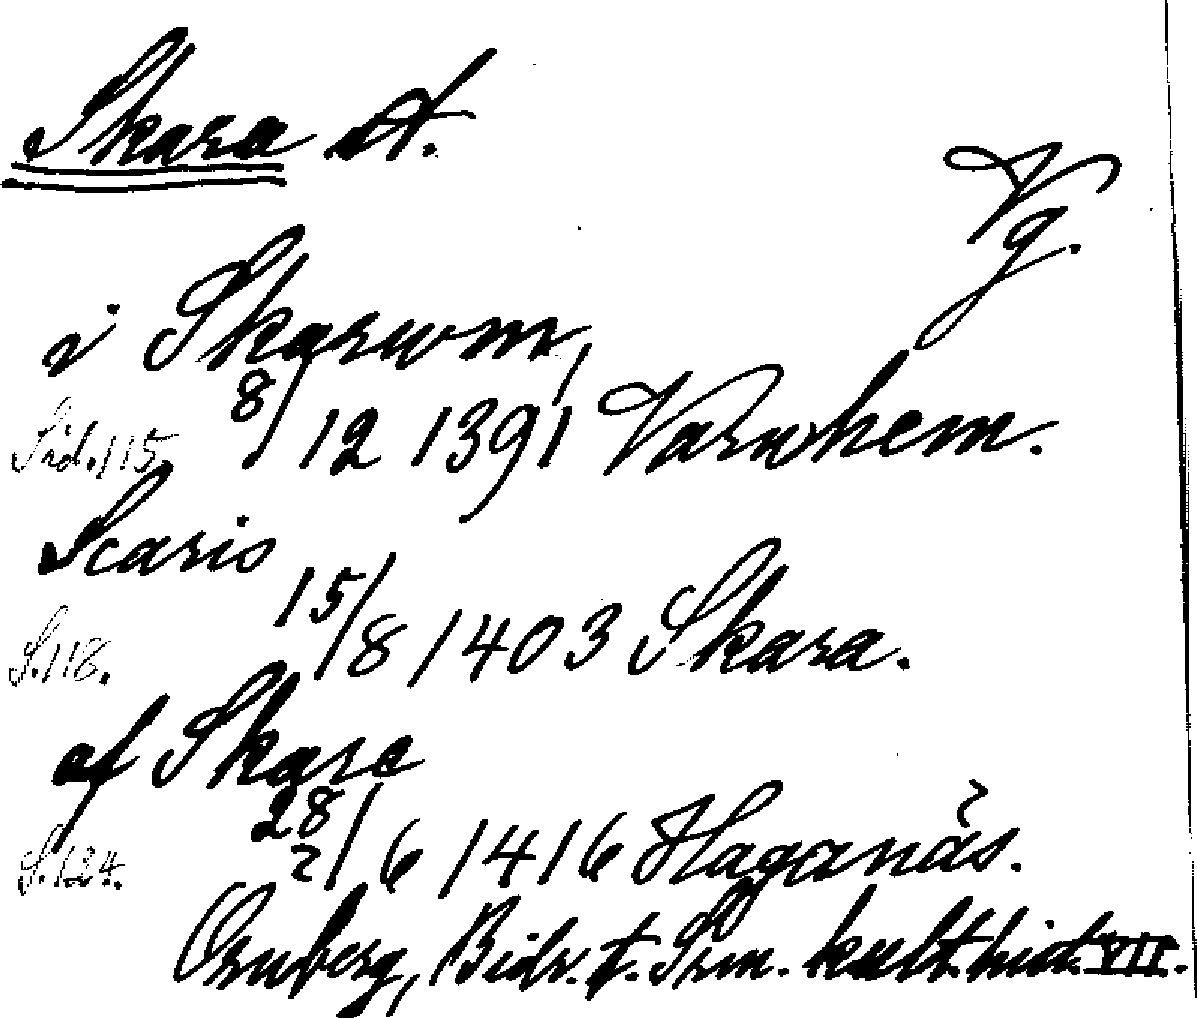 Skara st.
Vg.
i Skarum,
Sid. 115 8/12 1391 Varnhem.
Scaris
S. 118. 15/8 1403 Skara.
af Skara
S. 124. 28/6 1416 Haganäs.
Ornberg, Bidr. t. Srm. kult.hist. VII.